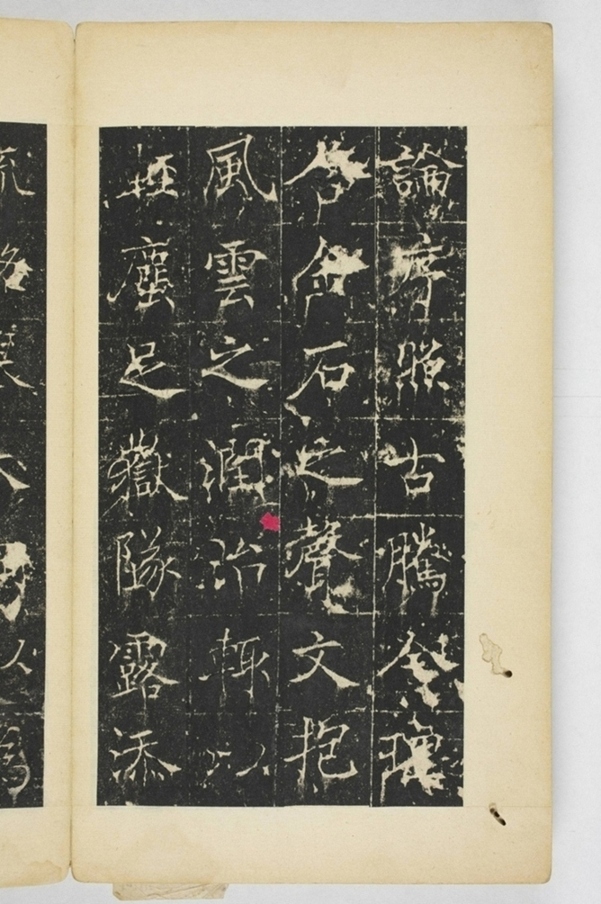 論序照古騰今理
含金石之聲文抱
風雲之潤治輒以
輕塵足嶽隊露添